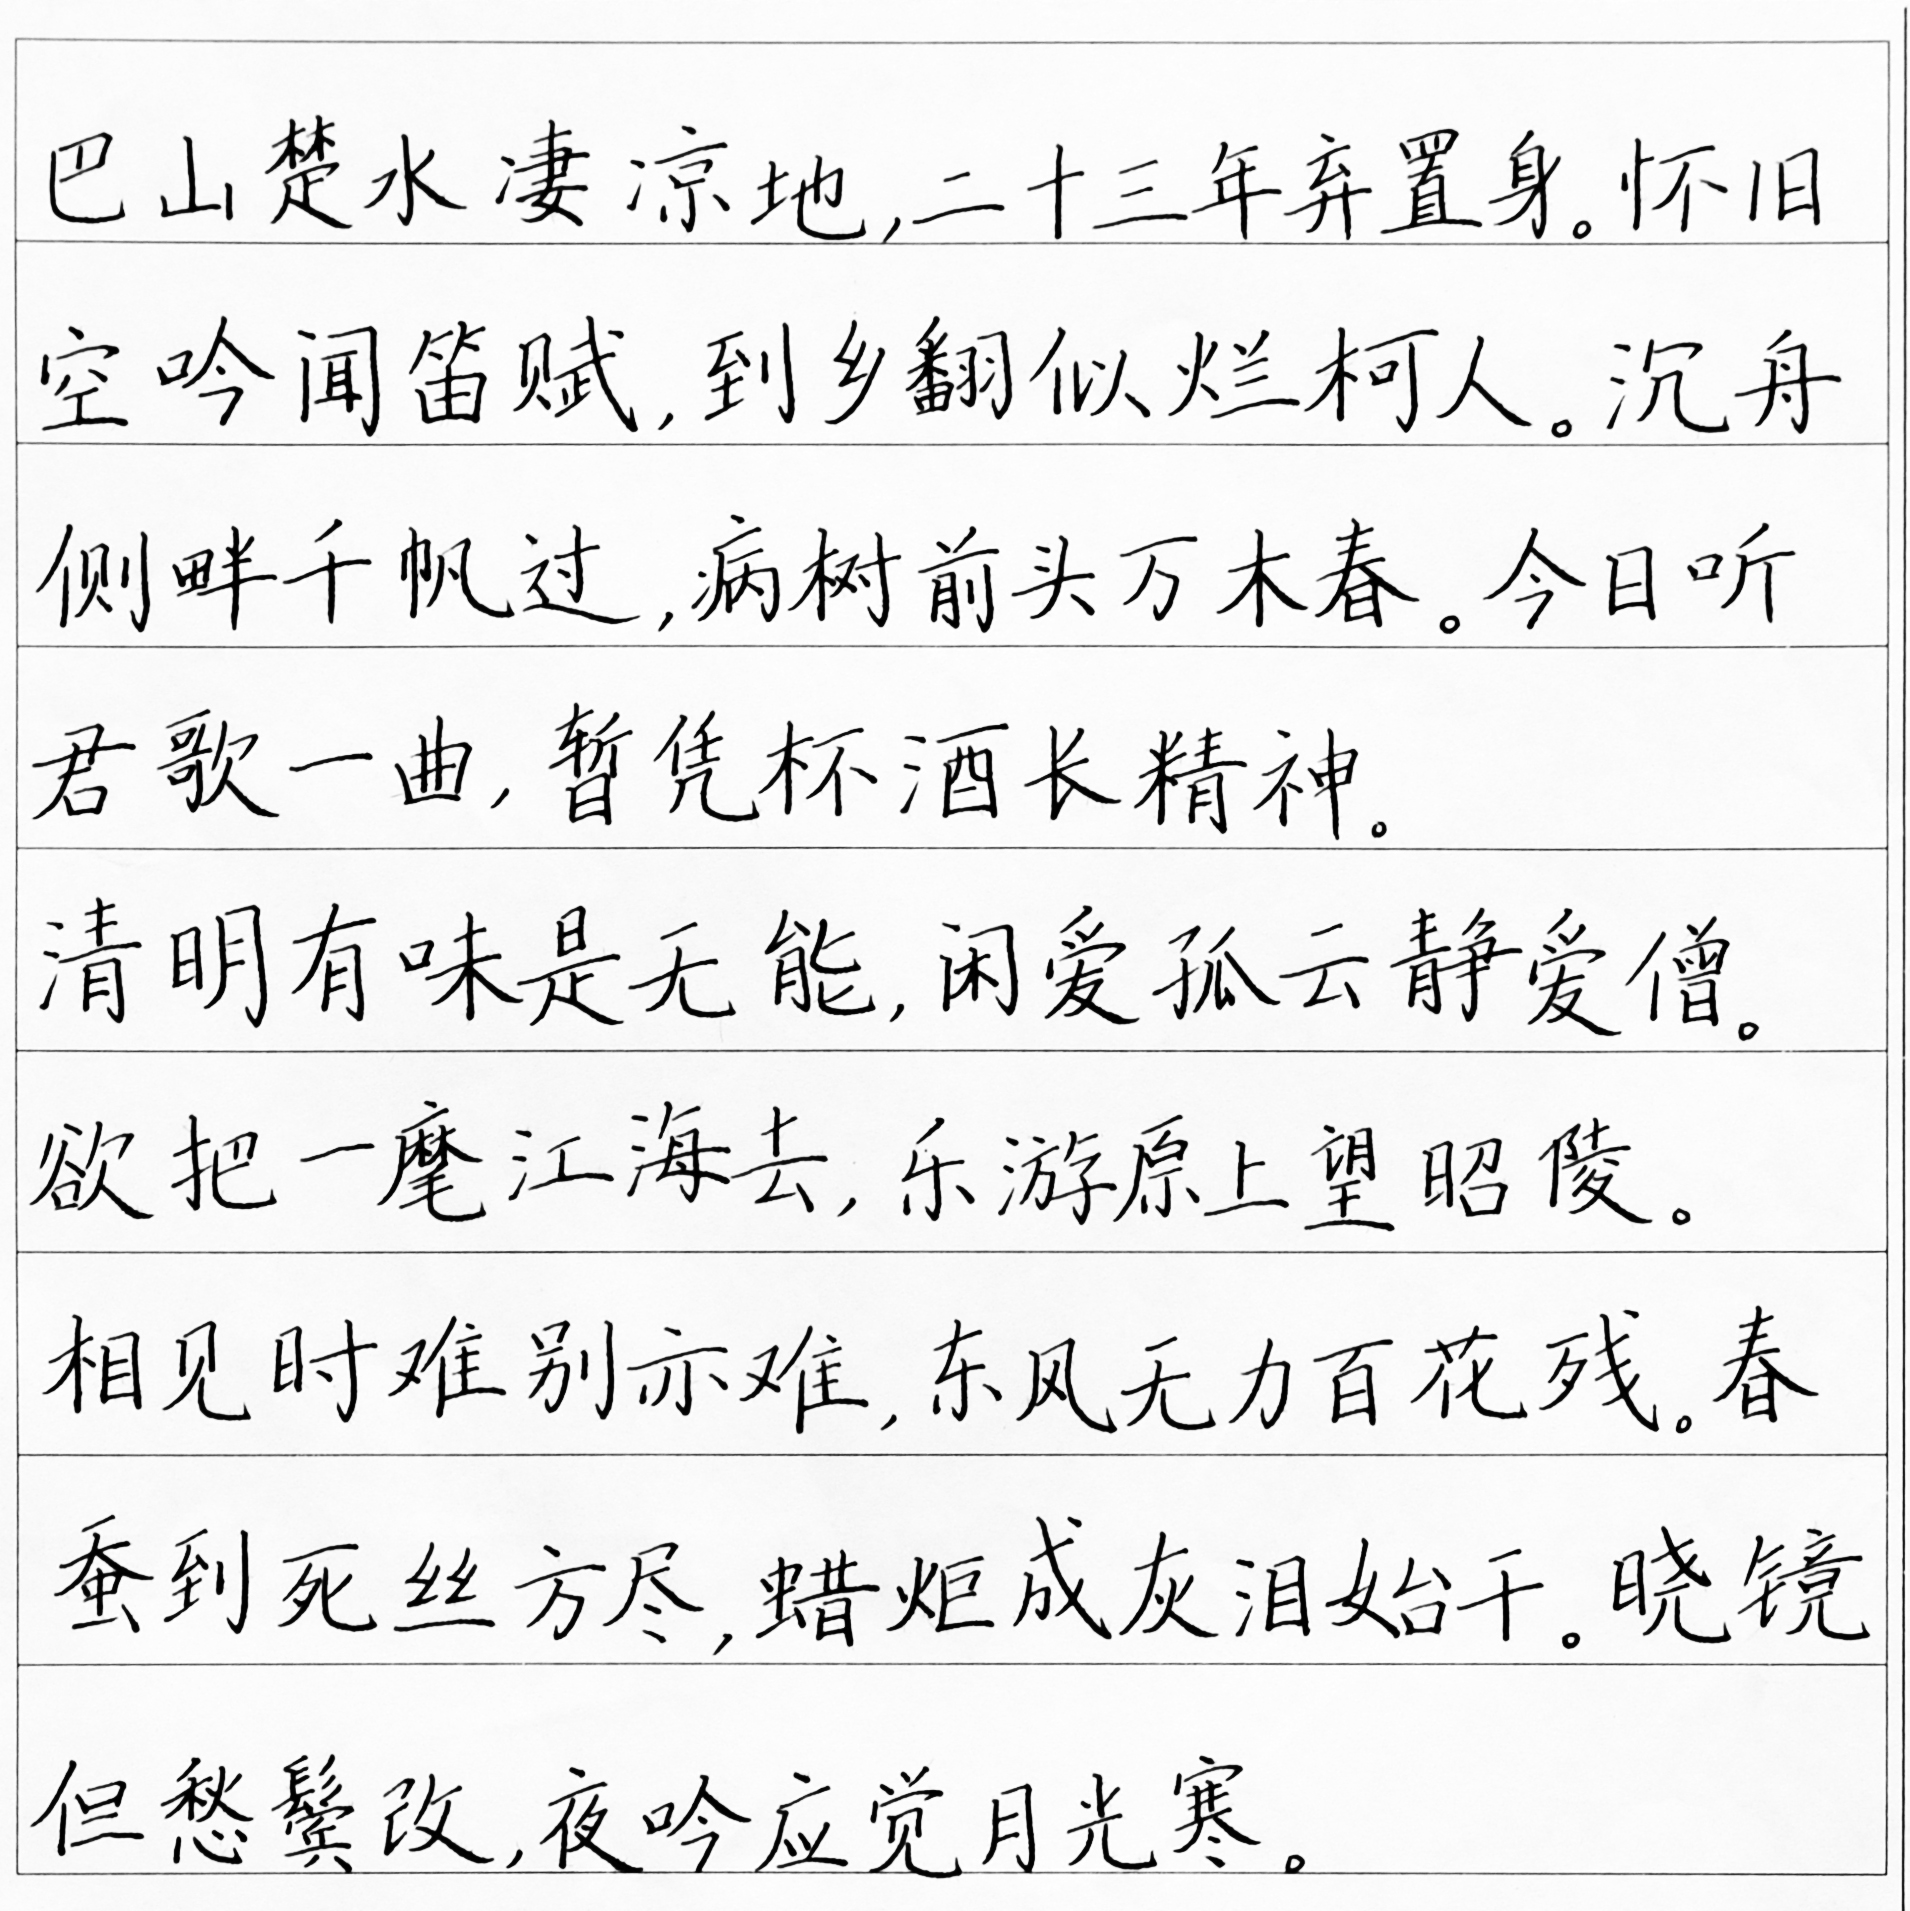 巴山楚水凄凉地,二十三年弃置身。怀旧
空吟闻笛赋,到乡翻似烂柯人。沉舟
侧畔千帆过,病树前头万木春。今日听
君歌一曲,暂凭杯酒长精神。
清明有味是无能,闲爱孤云静爱僧。
欲把一麾江海去,乐游原上望昭陵。
相见时难别亦难,东风无力百花残。春
蚕到死丝方尽,蜡炬成灰泪始干。晓镜
但愁鬓改,夜吟应觉月光寒。